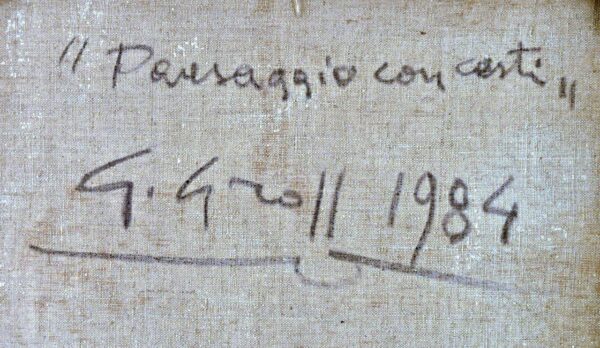 "Paesaggio con cesti"
G. Groll 1984